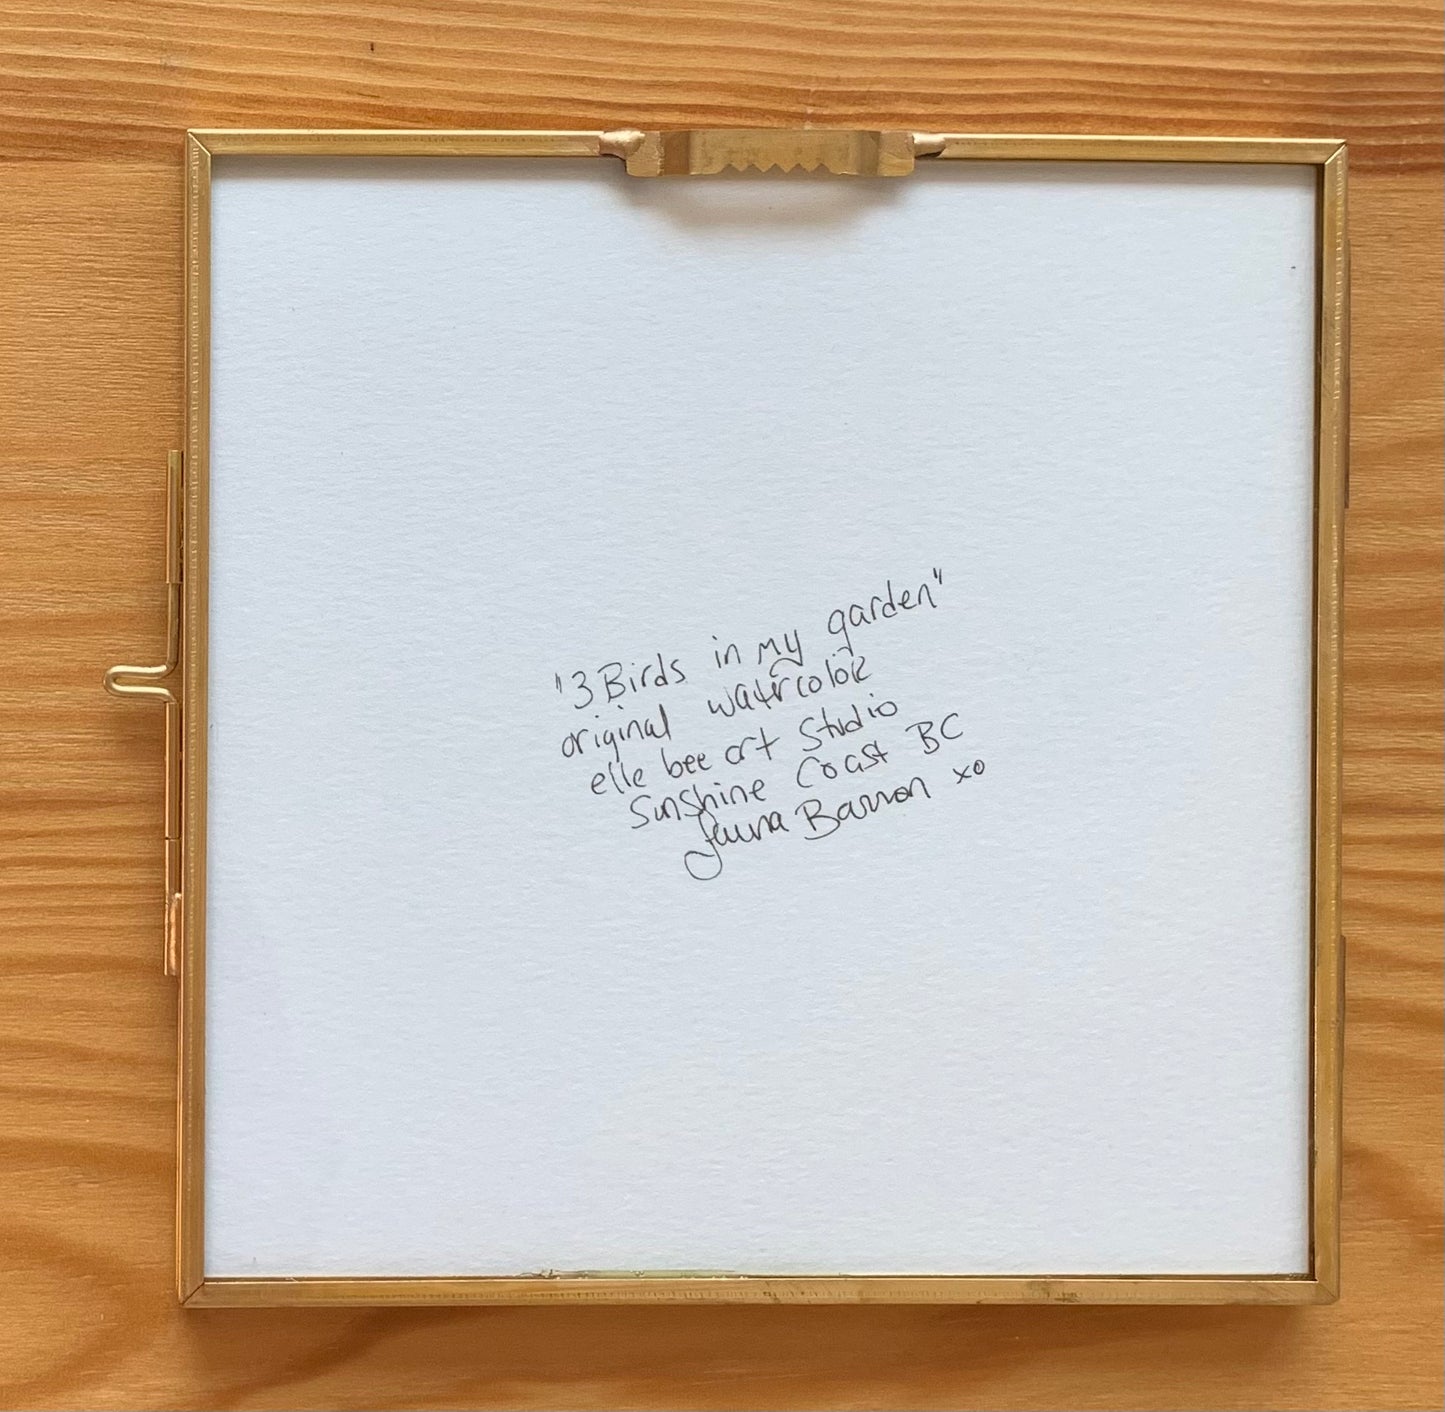 "3 Birds in my garden"
original
elle bee art Studio
Sunshine Coast BC
Barron xo